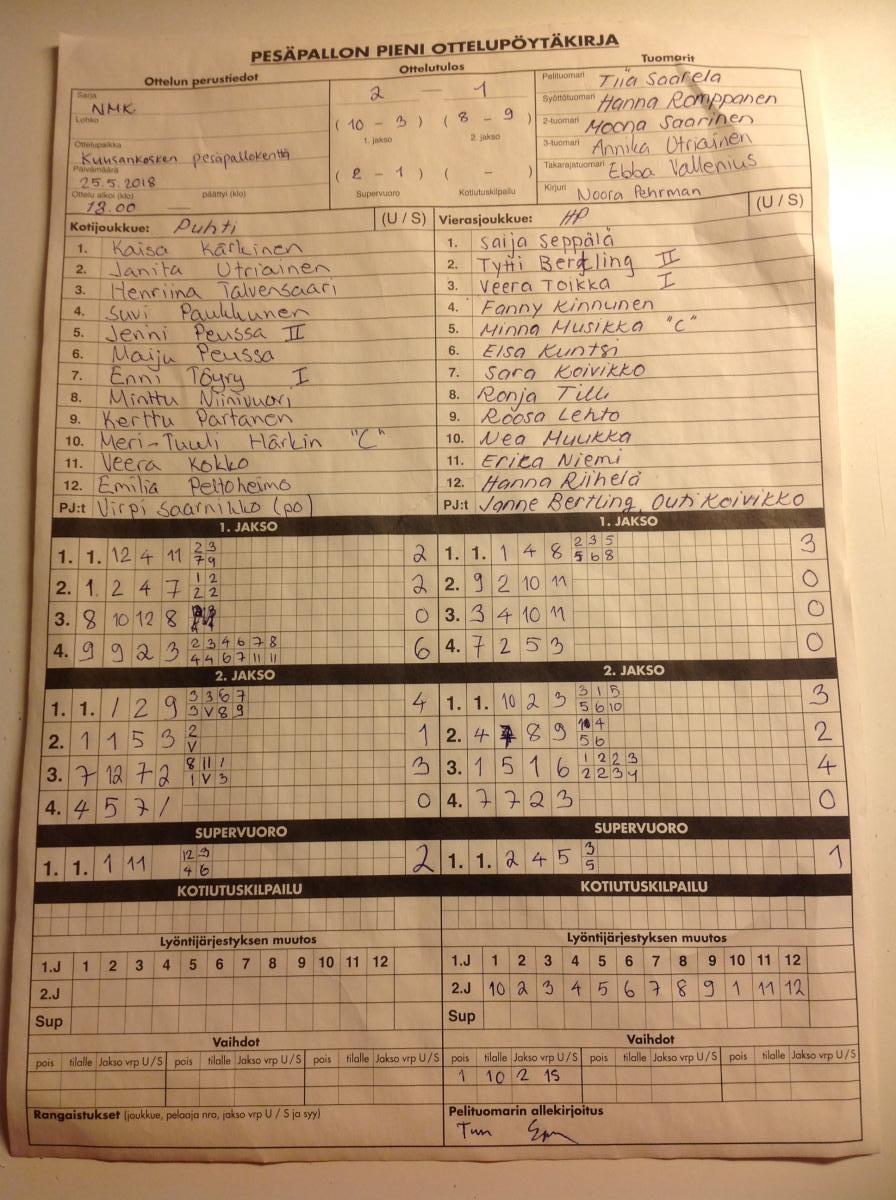 PESÄPALLON PIENI OTTELUPÖYTÄKIRJA
Ottelun perustiedot
Sarja
NMK
Lohko
Ottelupaikka
Kuusankosken pesäpallokenttä
Päivämäärä
25.5.2018
Ottelu alkoi (klo) päättyi (klo)
13.00
Ottelutulos
2 — 1
( 10 - 3 ) ( 8 - 9 )
1. jakso 2. jakso
( 2 - 1 ) ( - )
Supervuoro Kotiutuskilpailu
Tuomarit
Pelituomari Tiia Saarela
Syöttötuomari Hanna Romppanen
2-tuomari Moona Saarinen
3-tuomari Annika Utriainen
Takarajatuomari Ebba Vallenius
Kirjuri Noora Pehrman
Kotijoukkue: Puhti (U / S)
1. Kaisa Kärkinen
2. Janita Utriainen
3. Henriina Talvensaari
4. Suvi Paukkunen
5. Jenni Peussa II
6. Maiju Peussa
7. Enni Töyry I
8. Minttu Niinivuori
9. Kerttu Partanen
10. Meri-Tuuli Härkin "C"
11. Veera Kokko
12. Emilia Peltoheimo
PJ:t Virpi Saarnikko (po)
Vierasjoukkue: HP (U / S)
1. Saija Seppälä
2. Tytti Bertling II
3. Veera Toikka I
4. Fanny Kinnunen
5. Minna Musikka "C"
6. Elsa Kuntsi
7. Sara Koivikko
8. Ronja Tilli
9. Roosa Lehto
10. Nea Muukka
11. Erika Niemi
12. Hanna Riihelä
PJ:t Janne Bertling, Outi Koivikko
1. JAKSO
1. 1. 12 4 11 2 3 2
7 9
2. 1 2 4 7 1 2 2
2 2
3. 8 10 12 8 0
4. 9 9 2 3 2 3 4 6 7 8 6
4 4 6 7 11 11
1. JAKSO
1. 1. 1 4 8 2 3 5 3
5 6 8
2. 9 2 10 11 0
3. 3 4 10 11 0
4. 7 2 5 3 0
2. JAKSO
1. 1. / 2 9 3 3 6 7 4
3 V 8 9
2. 1 1 5 3 2 1
V
3. 7 12 7 2 8 11 1 3
1 V 3
4. 4 5 7 / 0
2. JAKSO
1. 1. 10 2 3 3 1 5 3
5 6 10
2. 4 8 9 10 4 2
5 6
3. 1 5 1 6 1 2 2 3 4
2 2 3 4
4. 7 7 2 3 0
SUPERVUORO
1. 1. 1 11 12 3 2
4 6
SUPERVUORO
1. 1. 2 4 5 3 1
5
KOTIUTUSKILPAILU
KOTIUTUSKILPAILU
Lyöntijärjestyksen muutos
1.J 1 2 3 4 5 6 7 8 9 10 11 12
2.J
Sup
Lyöntijärjestyksen muutos
1.J 1 2 3 4 5 6 7 8 9 10 11 12
2.J 10 2 3 4 5 6 7 8 9 1 11 12
Sup
Vaihdot
pois tilalle Jakso vrp U / S pois tilalle Jakso vrp U / S pois tilalle Jakso vrp U / S
Vaihdot
pois tilalle Jakso vrp U / S pois tilalle Jakso vrp U / S pois tilalle Jakso vrp U / S
1 10 2 1S
Rangaistukset (joukkue, pelaaja nro, jakso vrp U / S ja syy)
Pelituomarin allekirjoitus